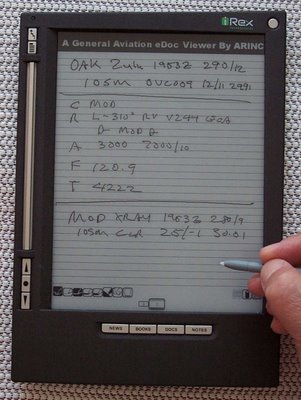 iRex
A General Aviation eDoc Viewer By ARINC
OAK Zulu 1953Z 290/12
10SM OVC009 12/11 2991
C MOD
R L-310° RV V244
D MOD D
A 3000 7000/10
F 120.9
T 4222
MOD XRAY 1953Z 280/9
10SM CLR 25/-1 30.01
NEWS BOOKS DOCS NOTES